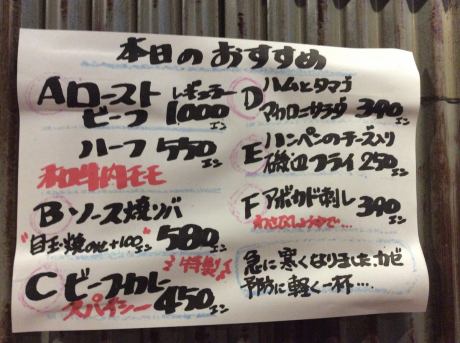 本日のおすすめ
Aロースト レギュラー
ビーフ 1000エン
ハーフ 550エン
和牛肉モモ
Bソース焼ソバ
"目玉焼のせ+100エン" 580エン
Cビーフカレー 特製!
スパイシー 450エン
Dハムとタマゴ
マカロニサラダ 390エン
Eハンペンのチーズ入り
磯辺フライ 250エン
Fアボカド刺し
わさびしょうゆで… 390エン
急に寒くなりました、カゼ
予防に軽く一杯…